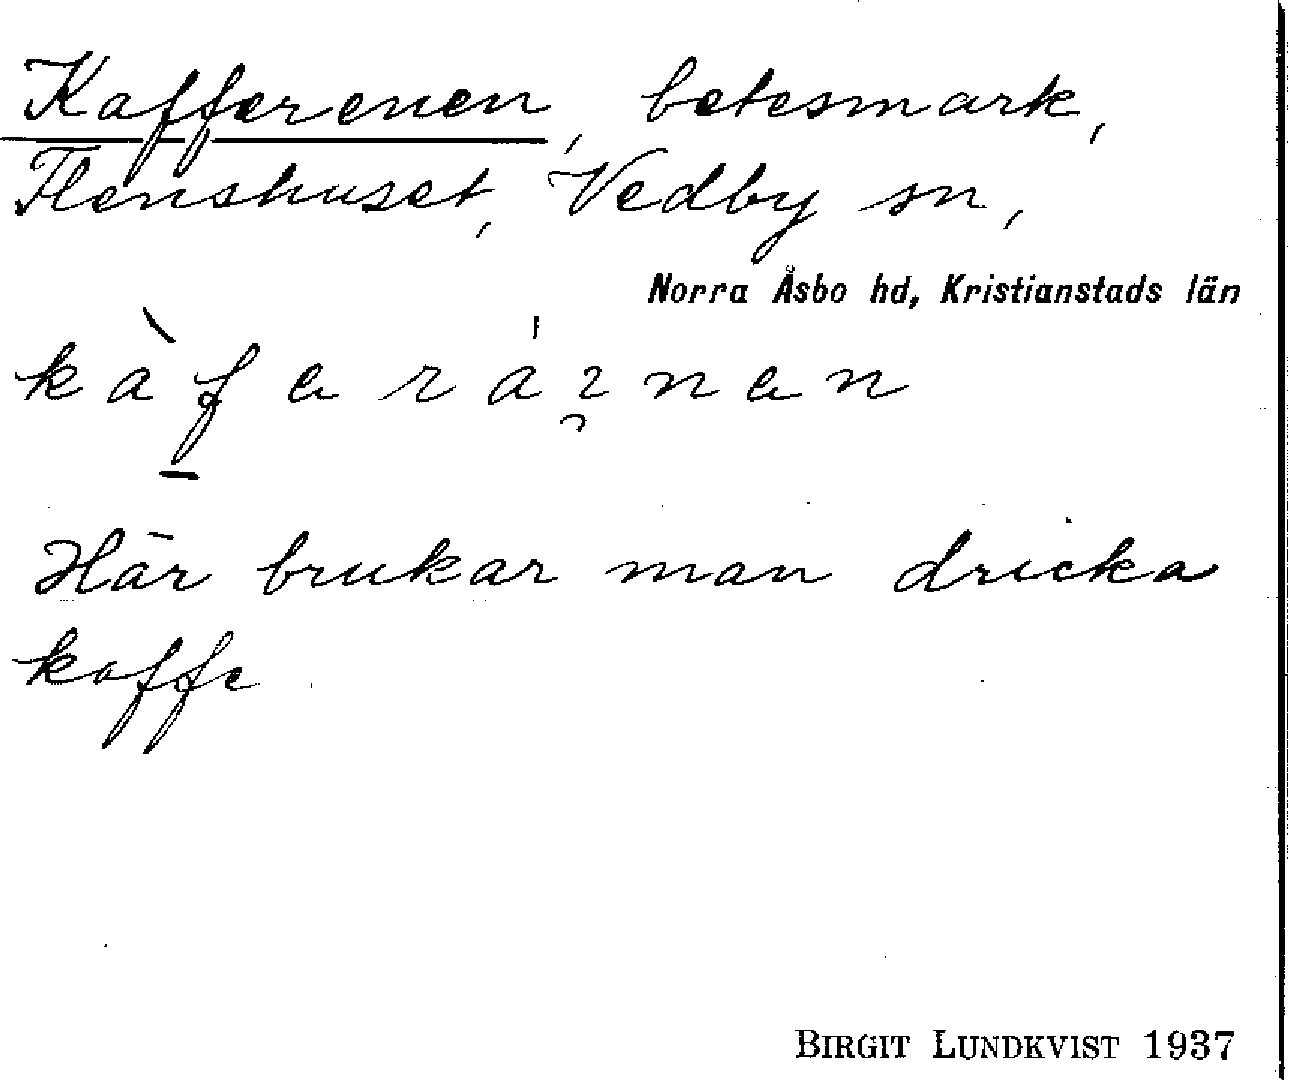 Kafferenen, betesmark,
Flenshuset, Vedby sn,
Norra Åsbo hd, Kristianstads län
Här brukar man dricka
kaffe
BIRGIT LUNDKVIST 1937